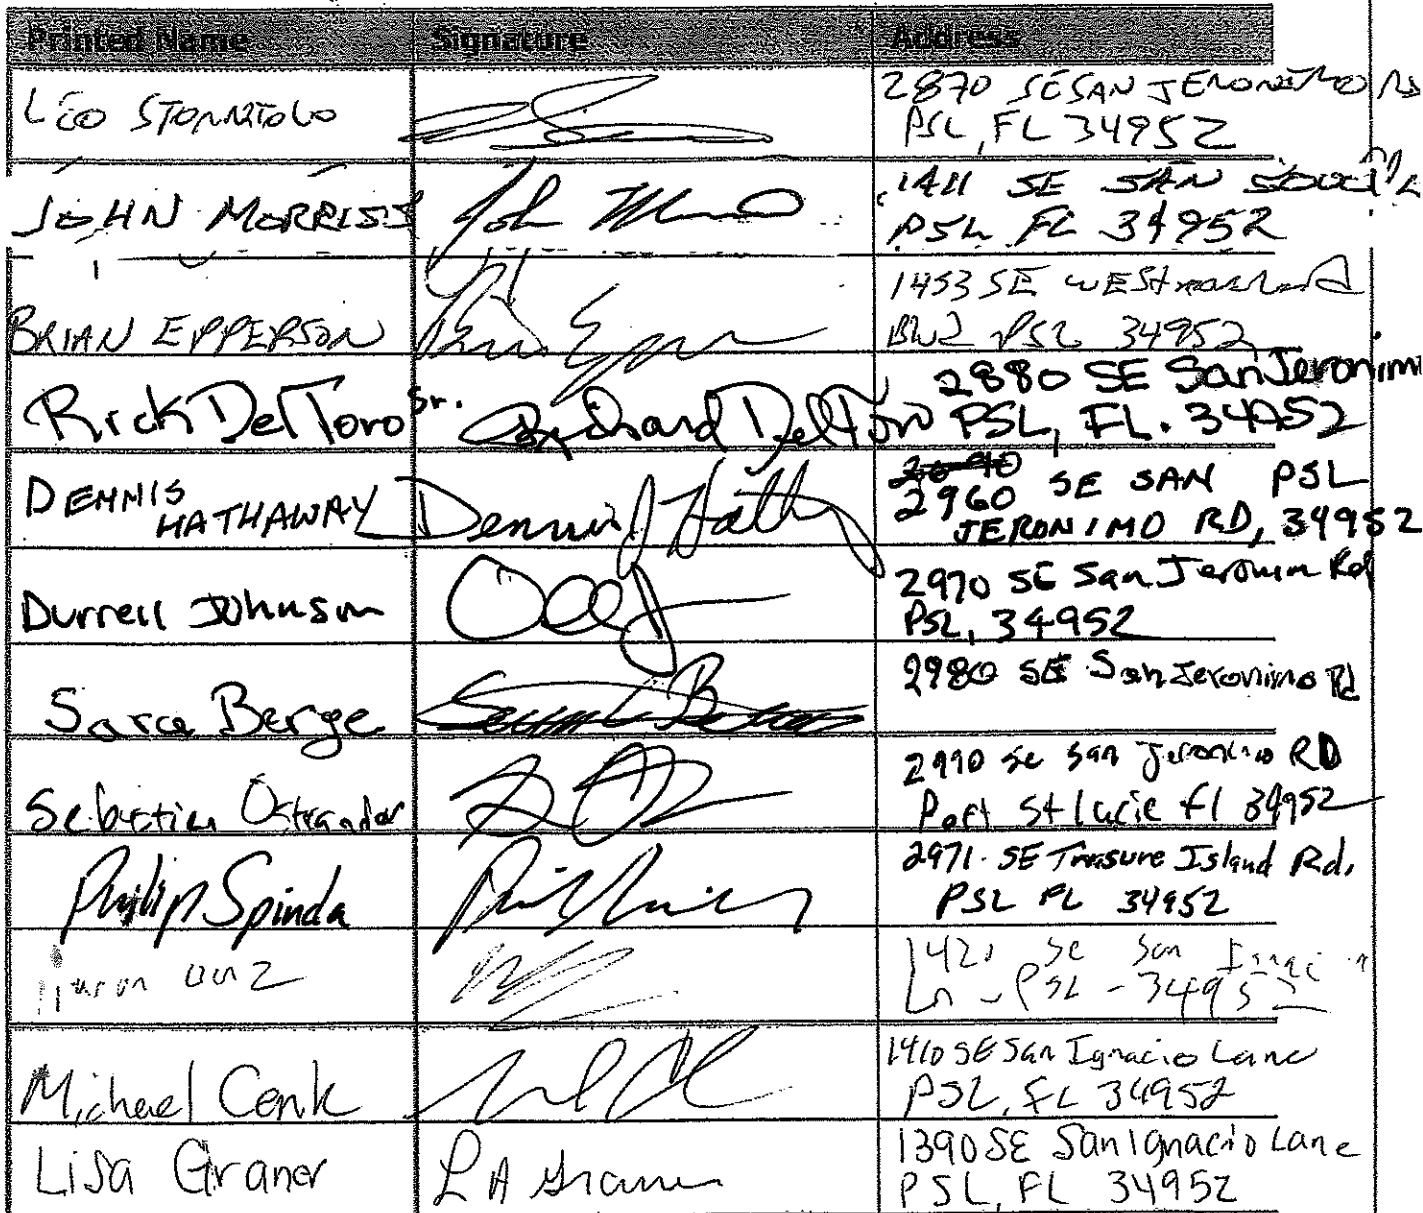 Printed Name Signature Address
LEO 2870 SE SAN JERONIMO RD
PSL, FL 34952
JOHN MORRISS John 1411 SE SAN
PSL FL 34952
BRIAN EPPERSON 1453 SE
Blvd PSL 34952
Rick DelToro Sr. Richard DelToro 2880 SE San Jeronimo
PSL, FL. 34952
DENNIS HATHAWAY Dennis J Hathy 2960 SE SAN PSL
JERONIMO RD, 34952
Durrell Johnson 2970 SE San Jeronim Rd
PSL, 34952
Sara Berge 2980 SE San Jeronimo Rd
Sebastien Ostrander 2990 SE San Jeronimo RD
Port St Lucie Fl 34952
Philip Spinda 2971 SE Treasure Island Rd.
PSL FL 34952
1421 SE San
Ln - PSL - 34952
Michael Cenk 1410 SE San Ignacio Lane
PSL, FL 34952
Lisa Graner L A Graner 1390 SE San Ignacio Lane
PSL, FL 34952